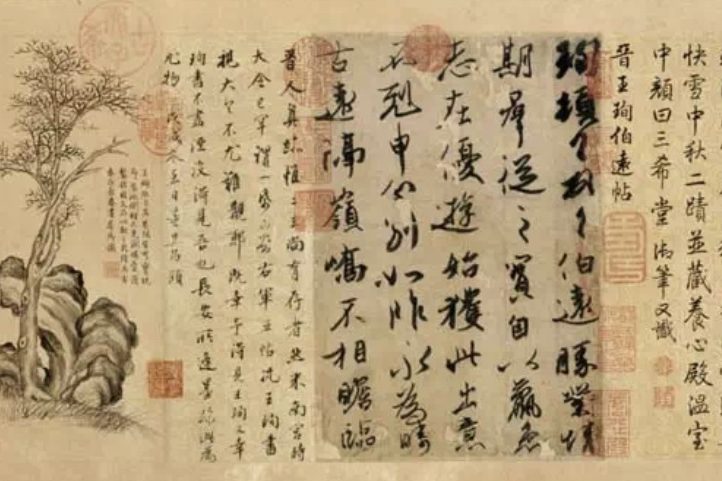 快雪中秋二蹟並藏養心殿溫室
中顏曰三希堂御筆又識
晉王珣伯遠帖
珣頓首頓首伯遠勝業情
期群從之寶自以羸患
志在優遊始獲此出意
不剋申分別如昨永為疇
古遠隔嶺嶠不相瞻臨
晉人真跡惟二王尚有存者然米南宮時
大令已罕謂一紙可當右軍五帖況王珣書
視大令不尤難覯耶既幸予得見王珣又幸
珣書不盡湮沒得見吾也長安所逢墨跡此為
尤物 戊戌冬至日董其昌題